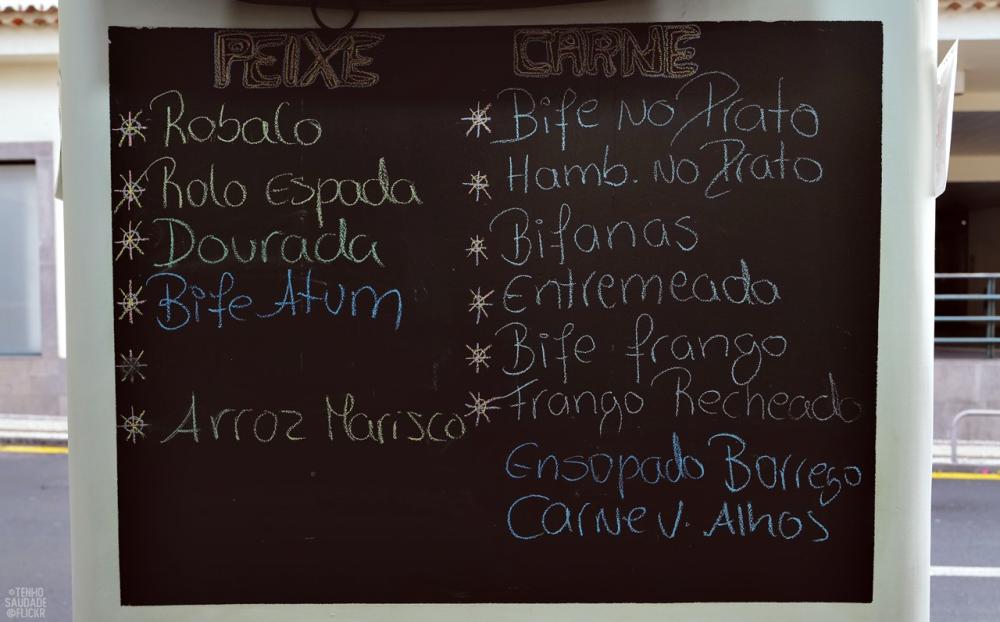 PEIXE
Robalo
Rolo Espada
Dourada
Bife Atum
Arroz Marisco
CARNE
Bife No Prato
Hamb. No Prato
Bifanas
Entremeada
Bife frango
Frango Recheado
Ensopado Borrego
Carne V. Alhos
©TENHO
SAUDADE
@FLICKR